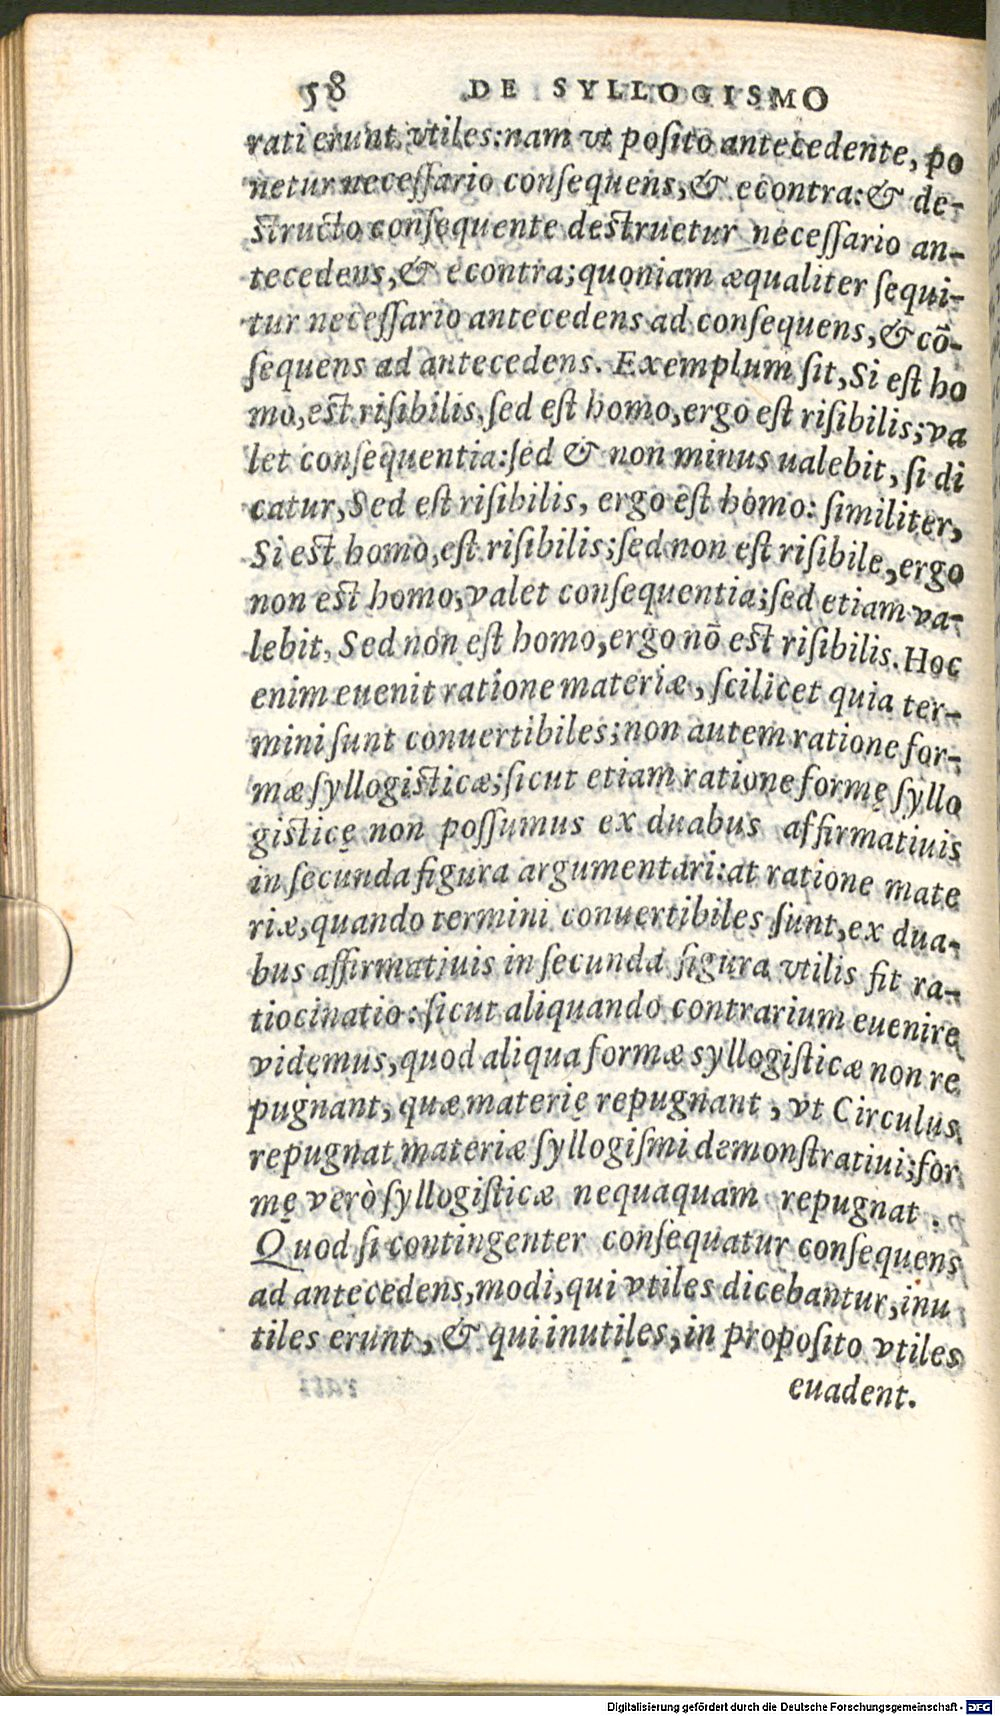 58 DE SYLLOGISMO
rati erunt vtiles: nam vt poſito antecedente, po
netur neceſſario conſequens, & econtra: & de-
ſtructo conſequente deſtruetur neceſſario an-
tecedens, & econtra; quoniam æqualiter ſequi-
tur neceſſario antecedens ad conſequens, & cō-
ſequens ad antecedens. Exemplum ſit, Si eſt ho
mo, eſt riſibilis, ſed eſt homo, ergo eſt riſibilis; va
let conſequentia: ſed & non minus ualebit, ſi di
catur, Sed eſt riſibilis, ergo eſt homo: ſimiliter,
Si eſt homo, eſt riſibilis; ſed non eſt riſibile, ergo
non eſt homo, valet conſequentia; ſed etiam va-
lebit, Sed non eſt homo, ergo nō eſt riſibilis. Hoc
enim euenit ratione materiæ, ſcilicet quia ter-
mini ſunt conuertibiles; non autem ratione for-
mæ ſyllogiſticæ; ſicut etiam ratione formę ſyllo
giſticę non poſſumus ex duabus affirmatiuis
in ſecunda figura argumentari: at ratione mate
riæ, quando termini conuertibiles ſunt, ex dua-
bus affirmatiuis in ſecunda figura vtilis fit ra-
tiocinatio: ſicut aliquando contrarium euenire
videmus, quod aliqua formæ syllogiſticæ non re
pugnant, quæ materię repugnant, vt Circulus
repugnat materiæ ſyllogiſmi demonſtratiui; for
mę verò ſyllogiſticæ nequaquam repugnat.
Quod ſi contingenter conſequatur conſequens
ad antecedens, modi, qui vtiles dicebantur, inu
tiles erunt, & qui inutiles, in propoſito vtiles
euadent.
Digitalisierung gefördert durch die Deutsche Forschungsgemeinschaft - DFG